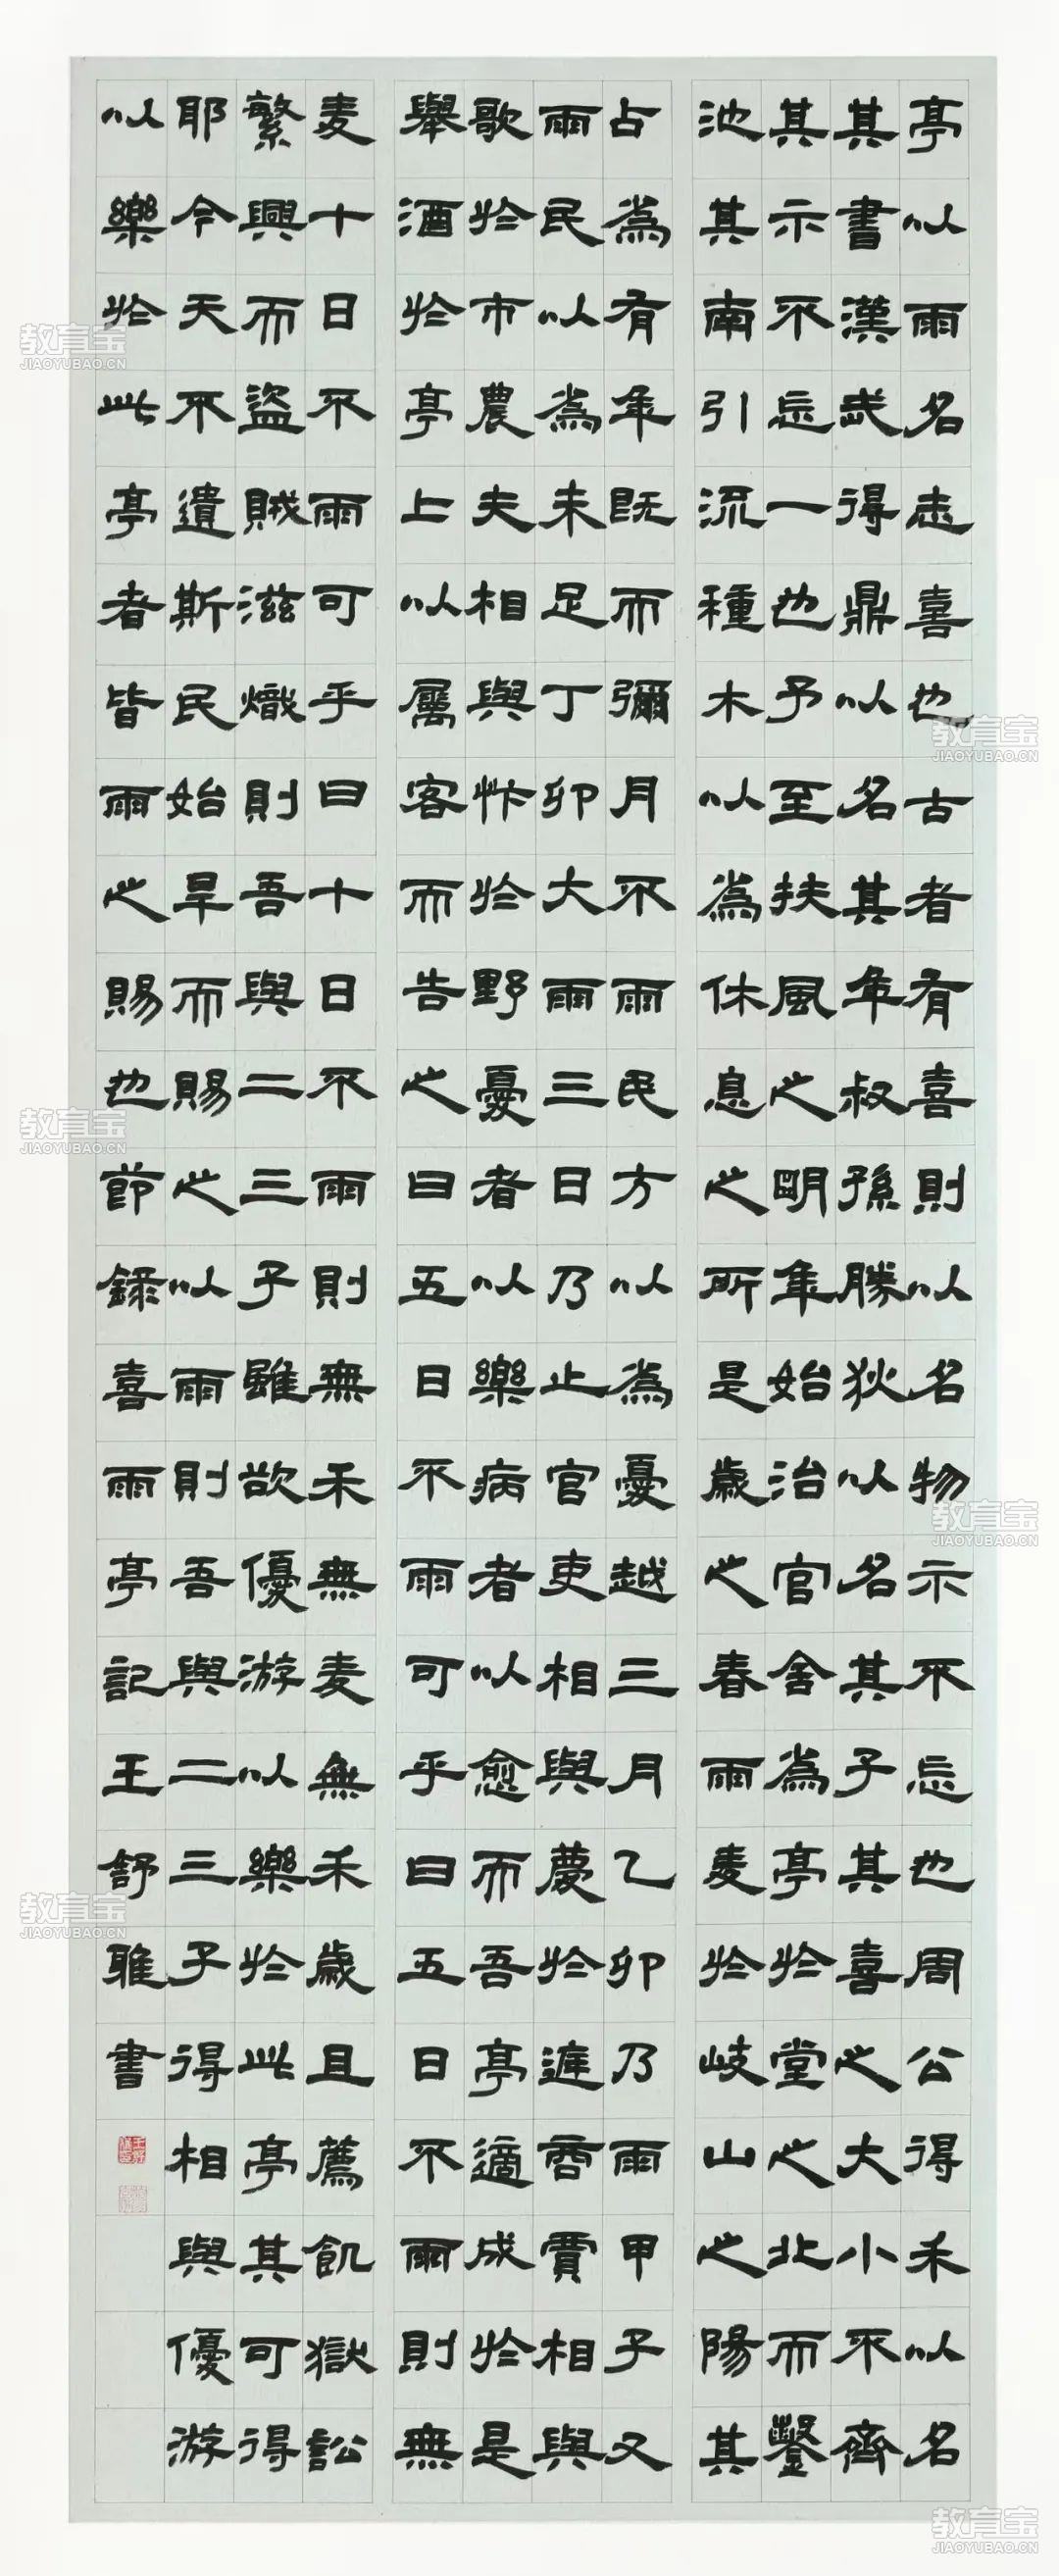 亭以雨名志喜也古者有喜則以名物示不忘也周公得禾以名
其書漢武得鼎以名其年叔孫勝狄以名其子其喜之大小不齊
其示不忘一也予至扶風之明年始治官舍為亭於堂之北而鑿
池其南引流種木以為休息之所是歲之春雨麦於岐山之陽其
占為有年既而彌月不雨民方以為憂越三月乙卯乃雨甲子又
雨民以為未足丁卯大雨三日乃止官吏相與慶於庭商賈相與
歌於市農夫相與忭於野憂者以樂病者以愈而吾亭適成於是
舉酒於亭上以屬客而告之曰五日不雨可乎曰五日不雨則無
麦十日不雨可乎曰十日不雨則無禾無麦無禾歲且薦飢獄訟
繁興而盜賊滋熾則吾與二三子雖欲優游以樂於此亭其可得
耶今天不遺斯民始旱而賜之以雨則吾與二三子得相與優游
以樂於此亭者皆雨之賜也節錄喜雨亭記王舒雅書
教育宝
JIAOYUBAO.CN
教育宝
JIAOYUBAO.CN
教育宝
JIAOYUBAO.CN
教育宝
JIAOYUBAO.CN
教育宝
JIAOYUBAO.CN
教育宝
JIAOYUBAO.CN